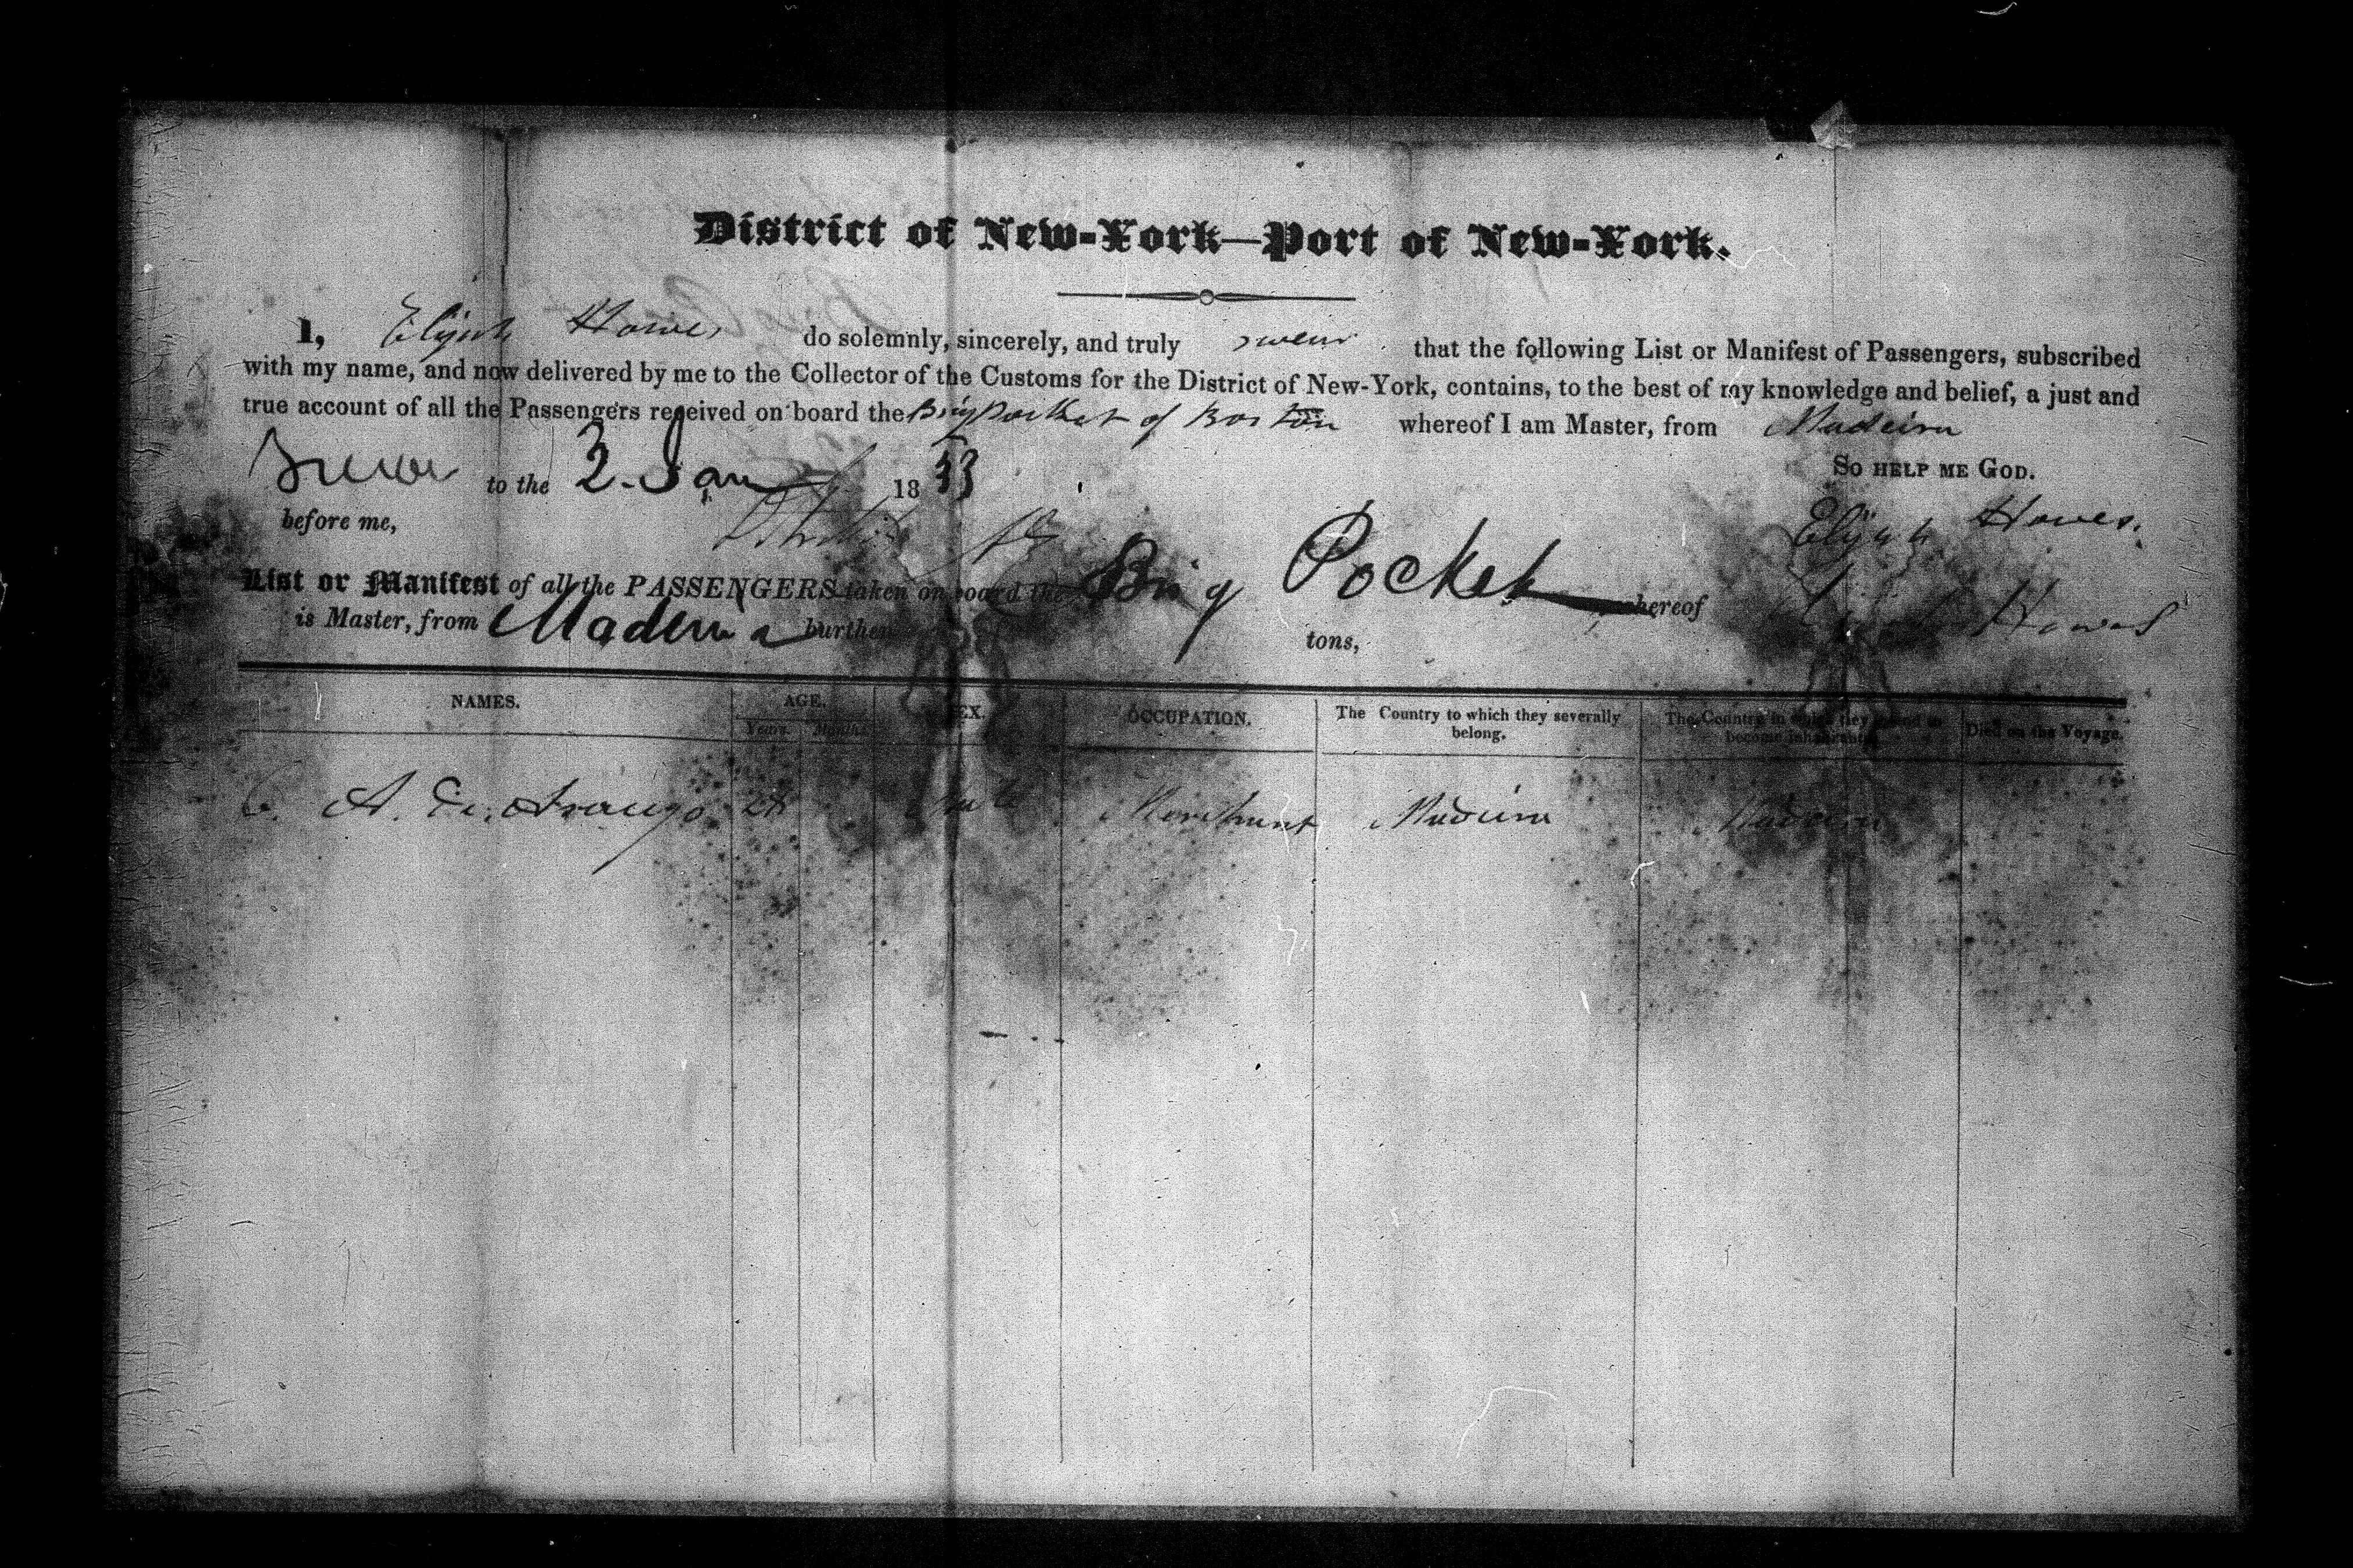 District of New-York—Port of New-York.
I, Elijah Howes do solemnly, sincerely, and truly swear that the following List or Manifest of Passengers, subscribed
with my name, and now delivered by me to the Collector of the Customs for the District of New-York, contains, to the best of my knowledge and belief, a just and
true account of all the Passengers received on board the Brig Pocket of Boston whereof I am Master, from Madeira
to the 2. Jan 1833 So help me God.
before me, Elijah Howes.
List or Manifest of all the PASSENGERS taken on board the Brig Pocket whereof Elijah Howes
is Master, from Madeira burthen tons,
NAMES. AGE. SEX. OCCUPATION. The Country to which they severally belong. The Country in which they intend to become inhabitants. Died on the Voyage.
Years. Months.
A. de Araujo 28 Male Merchant Madeira Madeira